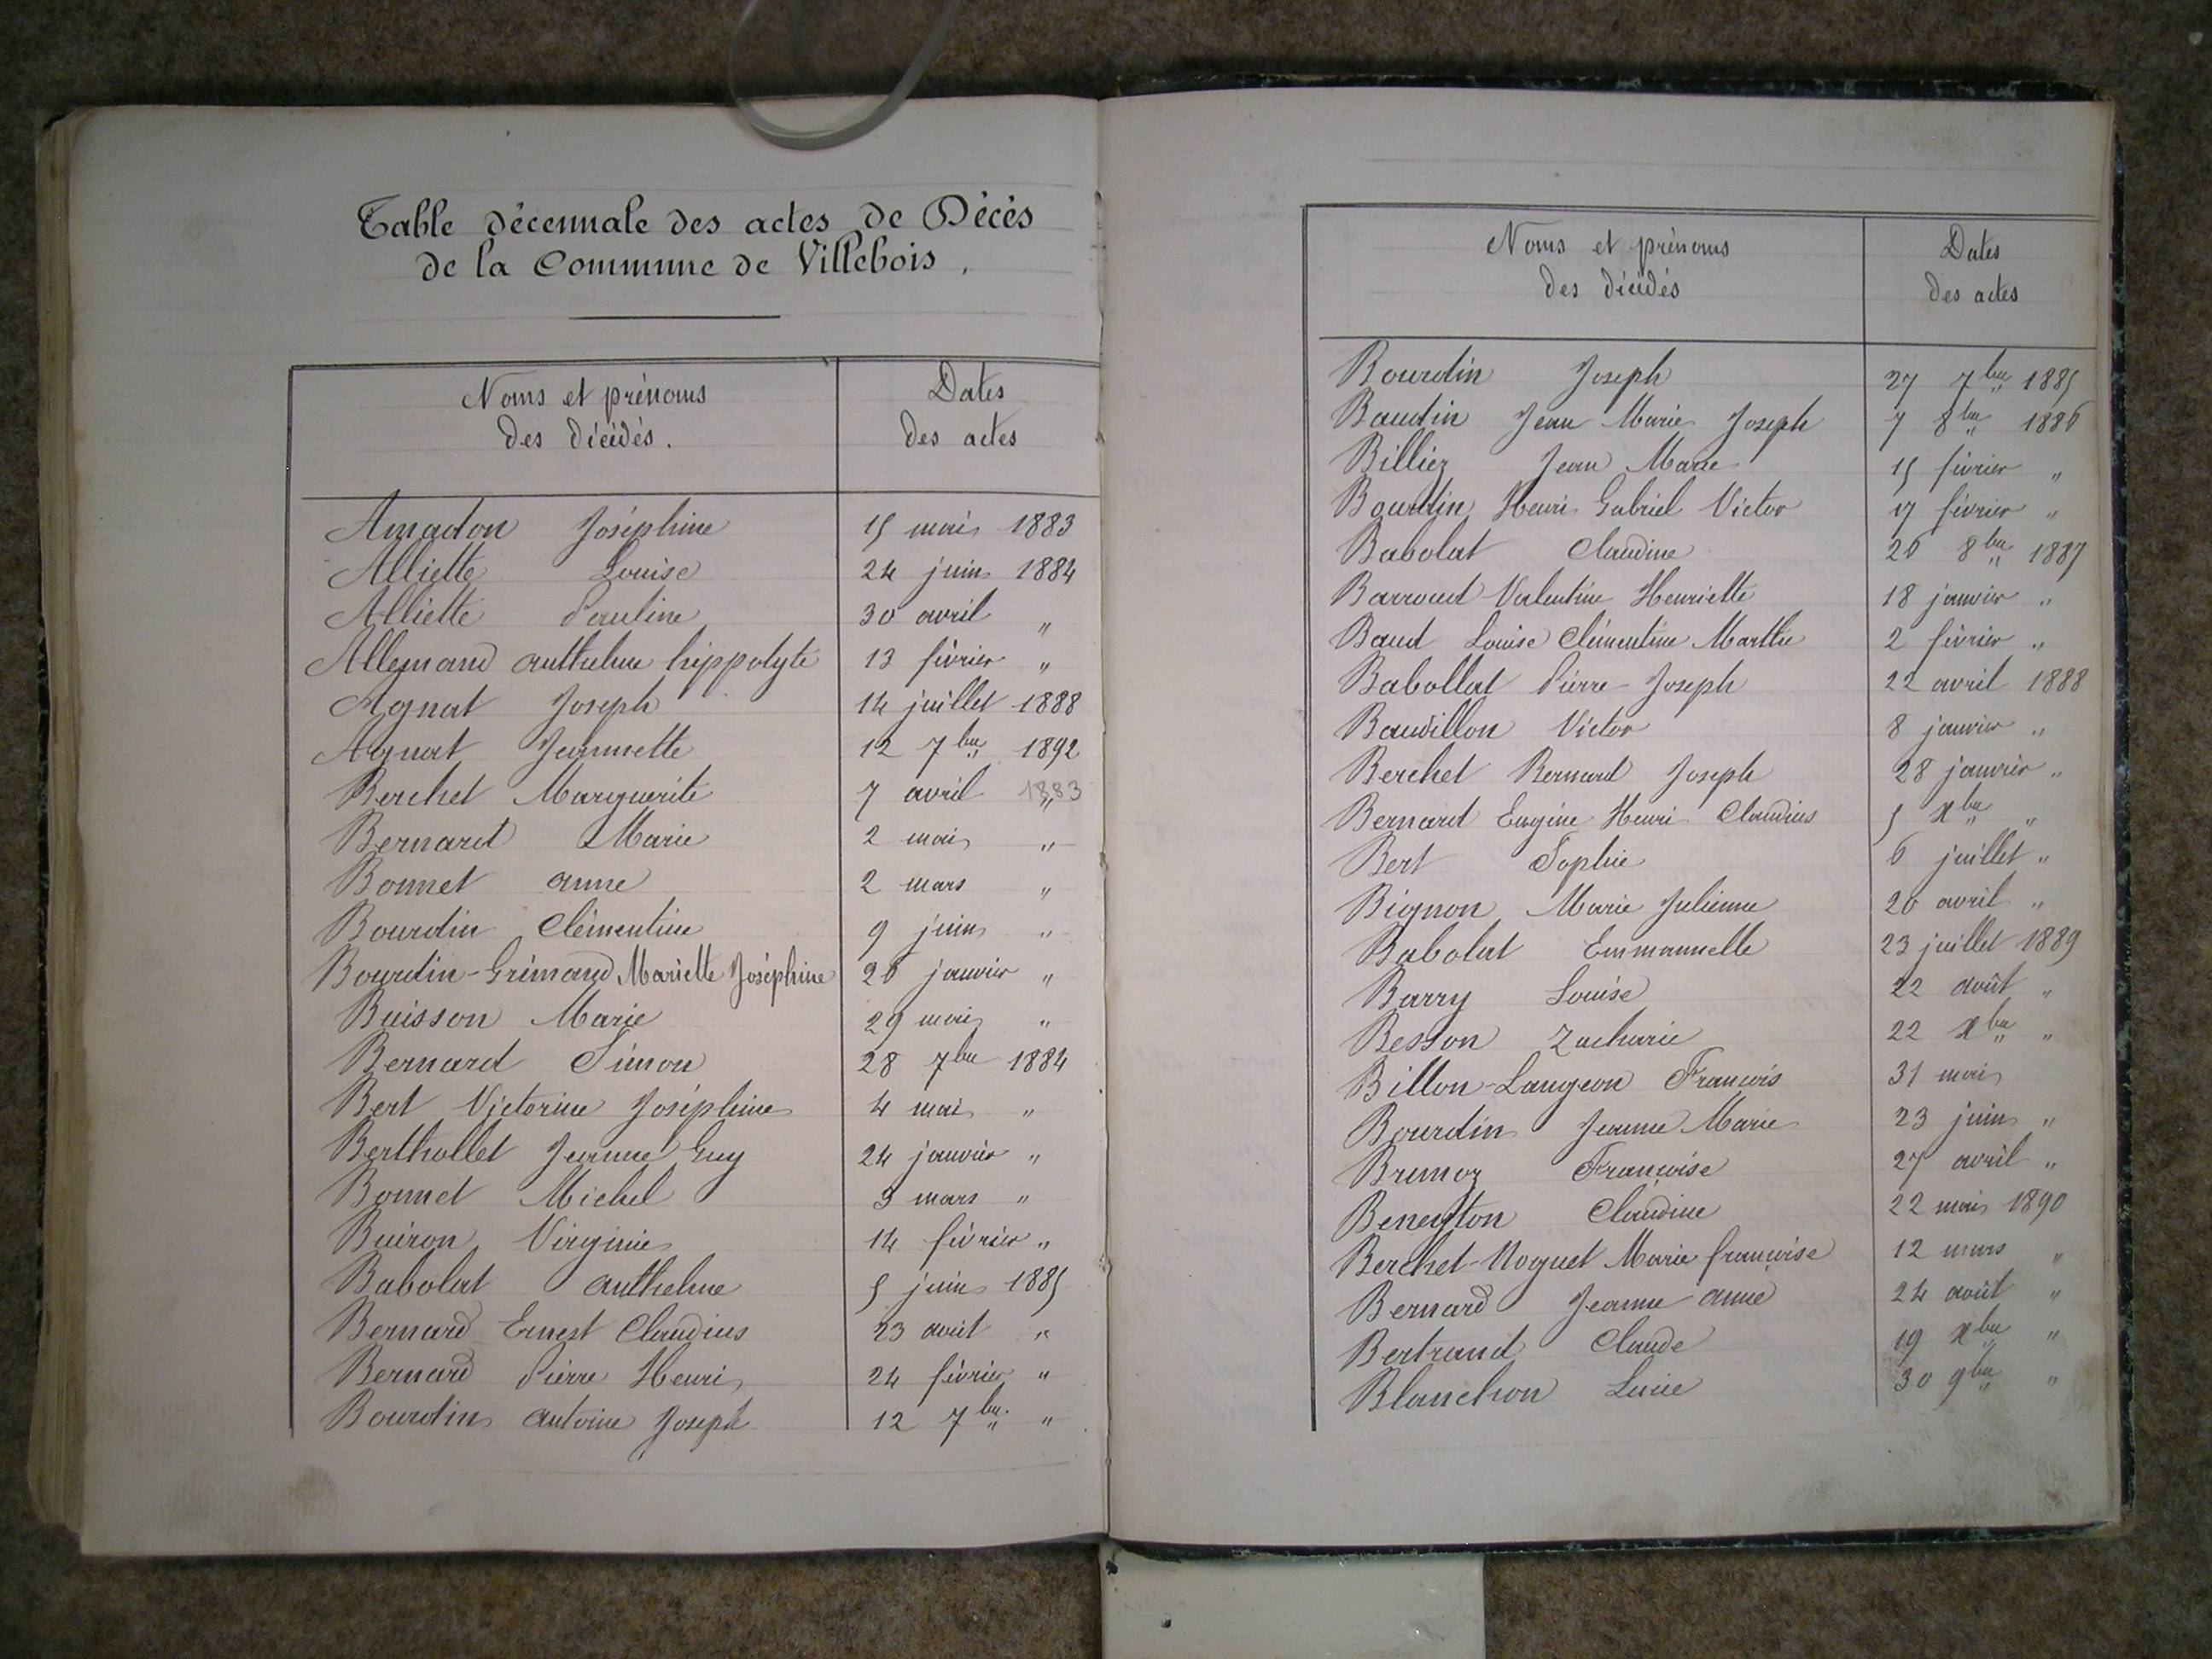 Table décennale des actes de Décès
de la Commune de Villebois.
Noms et prénoms
des décédés.
Dates
des actes
Amadon Joséphine 15 mai 1883
Alliette Louise 24 juin 1884
Alliette Pauline 30 avril "
Allemand anthelme hippolyte 13 février "
Agnat Joseph 14 juillet 1888
Agnat Jeannette 12 7bre 1892
Berchet Marguerite 7 avril 1883 "
Bernard Marie 2 mai "
Bonnet anne 2 mars "
Bourdin Clémentine 9 juin "
Bourdin-Grimaud Mariette Joséphine 26 janvier "
Buisson Marie 29 mai "
Bernard Simon 28 7bre 1884
Bert Victorine Joséphine 4 mai "
Berthollet Jeanne Guy 24 janvier "
Bonnet Michel 3 mars "
Buiron Virginie 14 février "
Babolat anthelme 5 juin 1885
Bernard Ernest Claudius 23 août "
Bernard Pierre Henri 24 février "
Bourdin antoine Joseph 12 7bre "
Noms et prénoms
des décédés
Dates
des actes
Bourdin Joseph 27 7bre 1885
Baudin Jean Marie Joseph 7 8bre 1886
Billiez Jean Marie 15 février "
Bourdin Henri Gabriel Victor 17 février "
Babolat Claudine 26 8bre 1887
Barroud Valentine Henriette 18 janvier "
Baud Louise Clémentine Marthe 2 février "
Babollat Pierre Joseph 22 avril 1888
Baudillon Victor 8 janvier "
Berchet Bernard Joseph 28 janvier "
Bernard Eugène Henri Claudius 5 Xbre "
Bert Sophie 6 juillet "
Bignon Marie Julienne 20 avril "
Babolat Emmanuelle 23 juillet 1889
Barry Louise 22 août "
Besson Zacharie 22 Xbre "
Billon-Laugeon François 31 mai
Bourdin Jeanne Marie 23 juin "
Brunoz Françoise 27 avril "
Beneyton Claudine 22 mai 1890
Berchet-Moguet Marie françoise 12 mars "
Bernard Jeanne anne 24 août "
Bertrand Claude 19 Xbre "
Blanchon Lucie 30 9bre "